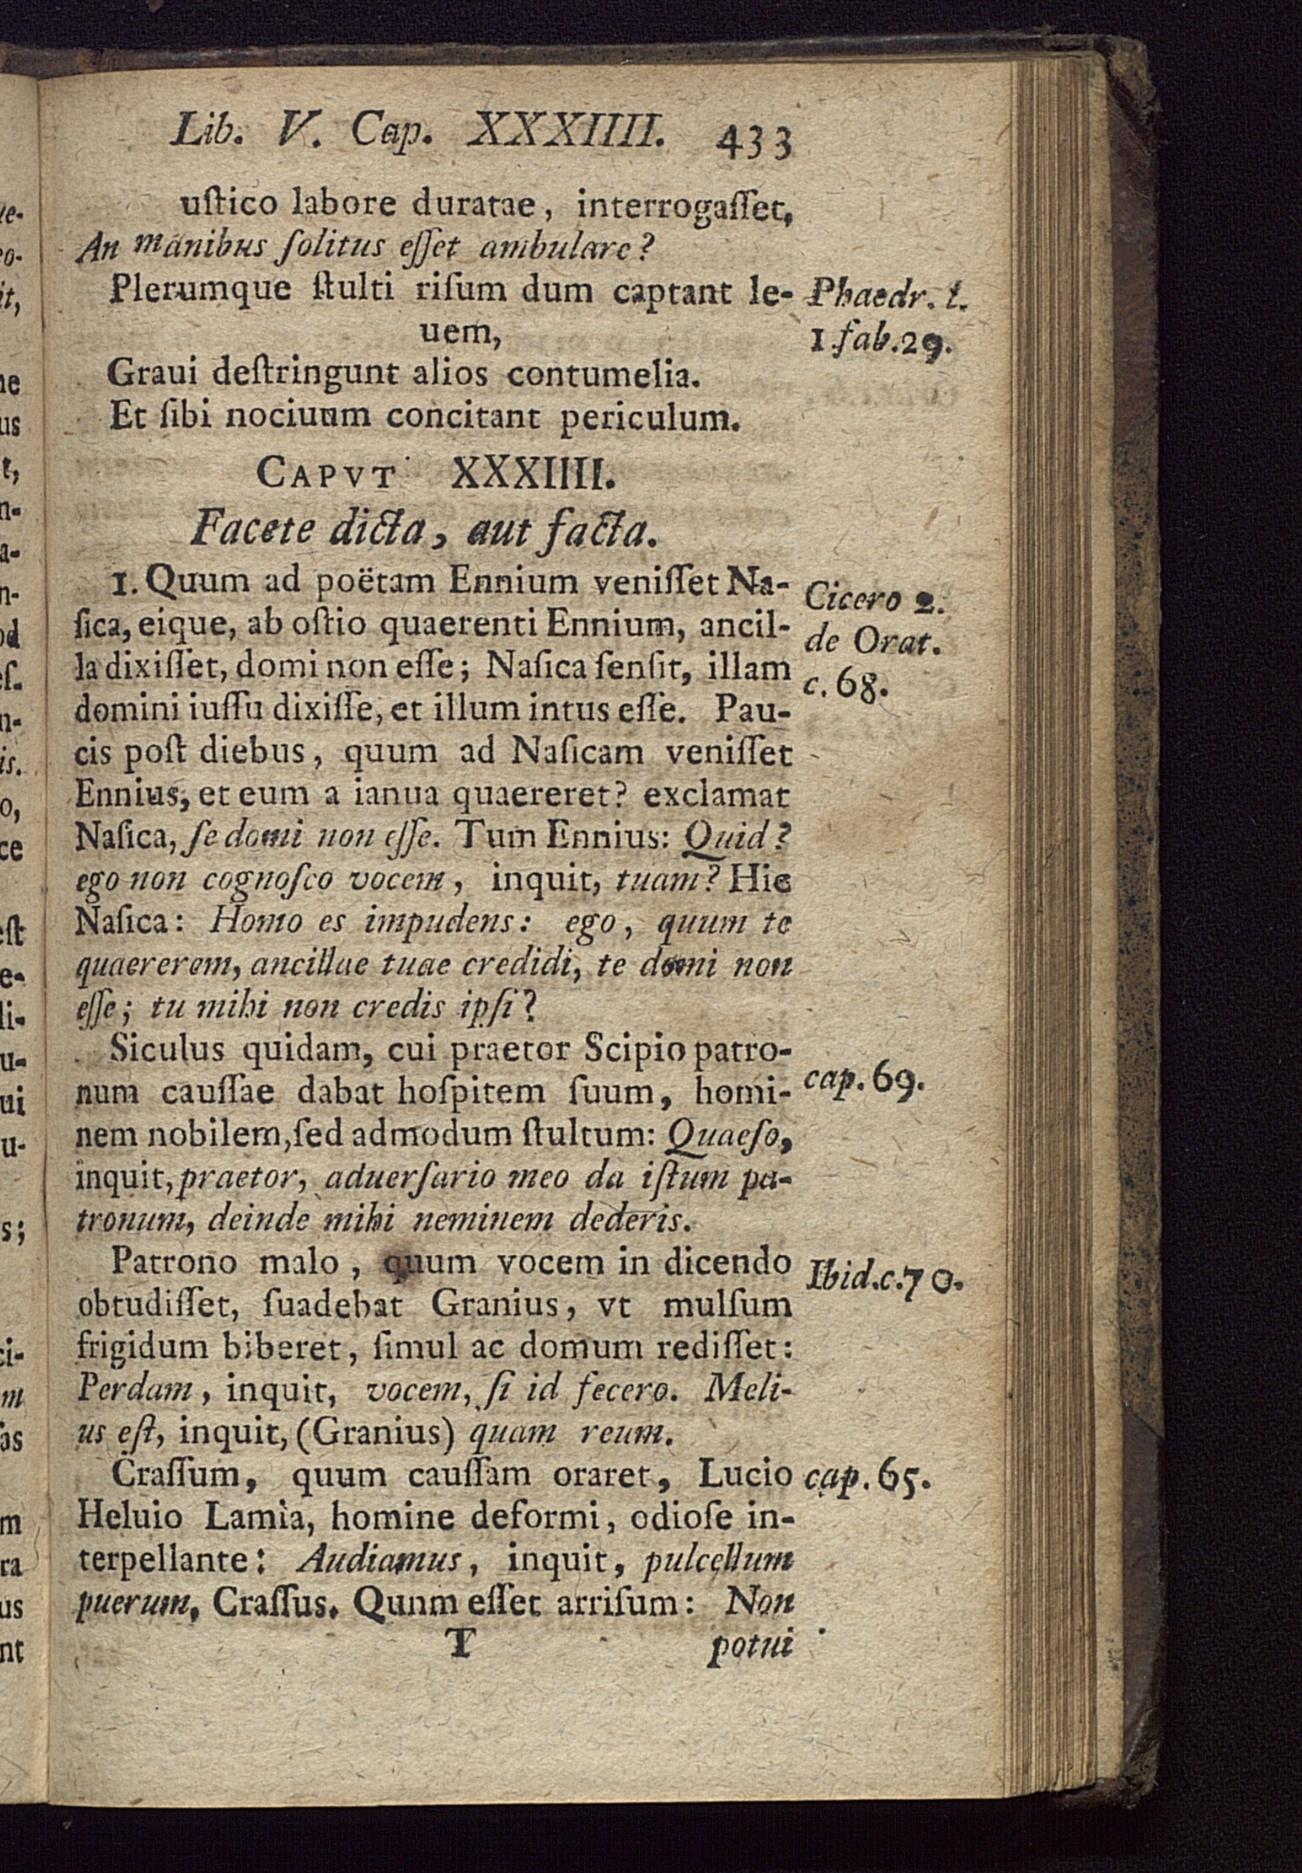 Lib. V. Cap. XXXIIII. 433
uſtico labore duratae, interrogaſſet,
An manibus ſolitus eſſet ambulare?
Plerumque ſtulti riſum dum captant le-
uem,
Phaedr. l.
1. fab. 29.
Graui deſtringunt alios contumelia.
Et ſibi nociuum concitant periculum.
CAPVT XXXIIII.
Facete dicta, aut facta.
1. Quum ad poëtam Ennium veniſſet Na-
ſica, eique, ab oſtio quaerenti Ennium, ancil-
la dixiſſet, domi non eſſe; Naſica ſenſit, illam
Cicero 2.
de Orat.
c. 68.
domini iuſſu dixiſſe, et illum intus eſſe. Pau-
cis poſt diebus, quum ad Naſicam veniſſet
Ennius, et eum a ianua quaereret? exclamat
Naſica, ſe domi non eſſe. Tum Ennius: Quid?
ego non cognoſco vocem, inquit, tuam? Hic
Naſica: Homo es impudens: ego, quum te
quaererem, ancillae tuae credidi, te domi non
eſſe; tu mihi non credis ipſi?
Siculus quidam, cui praetor Scipio patro-
num cauſſae dabat hoſpitem ſuum, homi-
cap. 69.
nem nobilem, ſed admodum ſtultum: Quaeſo,
inquit, praetor, aduerſario meo da iſtum pa-
tronum, deinde mihi neminem dederis.
Patrono malo, quum vocem in dicendo
Ibid. c. 70.
obtudiſſet, ſuadebat Granius, vt mulſum
frigidum biberet, ſimul ac domum rediſſet:
Perdam, inquit, vocem, ſi id fecero. Meli-
us eſt, inquit, (Granius) quam reum.
Craſſum, quum cauſſam oraret, Lucio
cap. 65.
Heluio Lamia, homine deformi, odioſe in-
terpellante: Audiamus, inquit, pulcellum
puerum, Craſſus. Qunm eſſet arriſum: Non
T potui